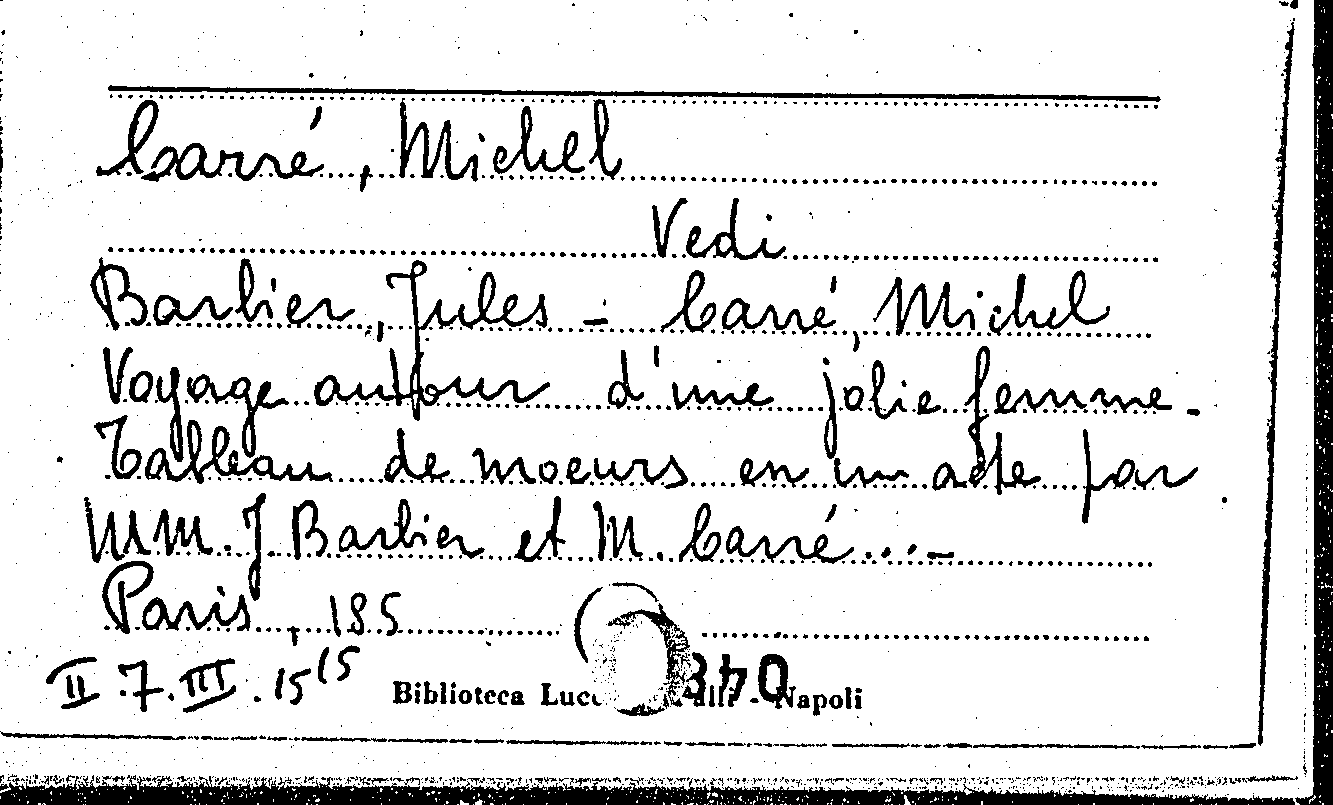 Carré, Michel
Vedi
Barbier, Jules - Carré, Michel
Voyage autour d'une jolie femme.
Tableau de moeurs en un acte par
MM. J. Barbier et M. Carré...-
Paris, 185
II.7.III.15 15
Biblioteca - Napoli